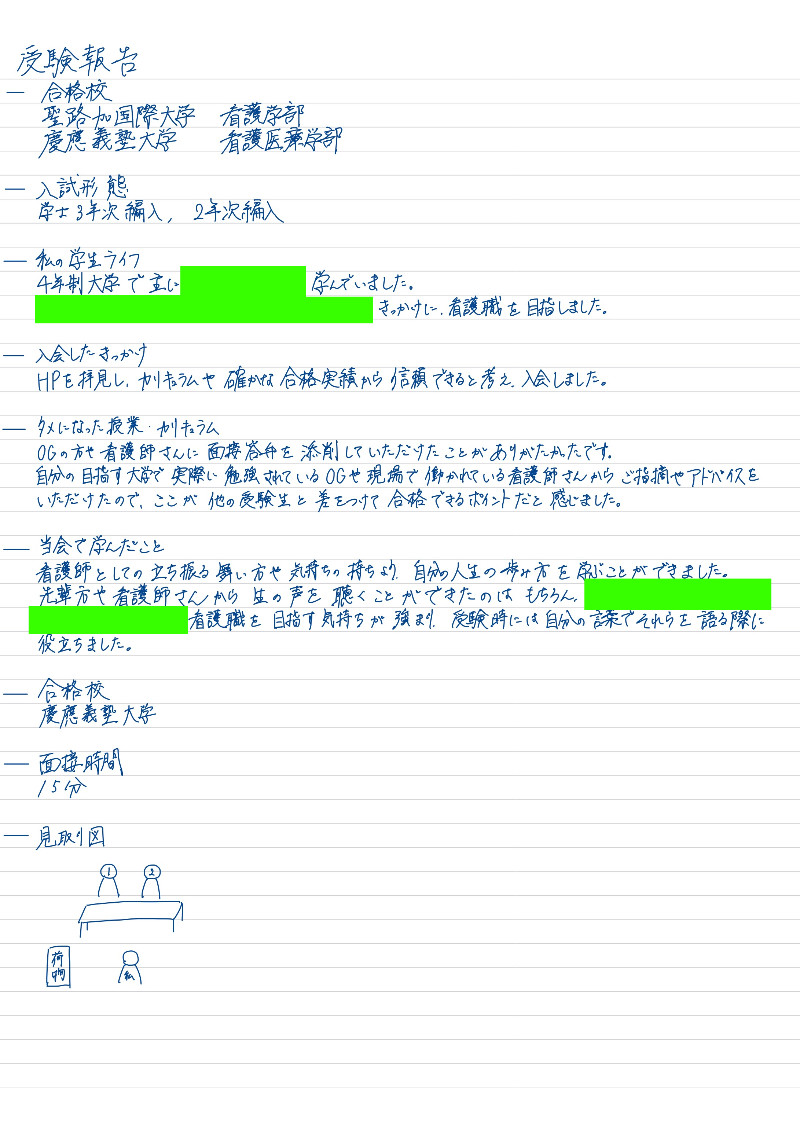 受験報告
― 合格校
聖路加国際大学 看護学部
慶應義塾大学 看護医療学部
― 入試形態
学士3年次編入, 2年次編入
― 私の学生ライフ
4年制大学で主に 学んでいました。
きっかけに、看護職を目指しました。
― 入会したきっかけ
HPを拝見し、カリキュラムや確かな合格実績から信頼できると考え、入会しました。
― タメになった授業・カリキュラム
OGの方や看護師さんに面接答弁を添削していただけたことがありがたかたです。
自分の目指す大学で実際に勉強されているOGや現場で働かれている看護師さんからご指摘やアドバイスを
いただけたので、ここが他の受験生と差をつけて合格できるポイントだと感じました。
― 当会で学んだこと
看護師としての立ち振る舞い方や気持ちの持ちより、自分の人生の歩み方を学ぶことができました。
先輩方や看護師さんから生の声を聴くことができたのはもちろん、
看護職を目指す気持ちが強まり、受験時には自分の言葉でそれらを語る際に
役立ちました。
― 合格校
慶應義塾大学
― 面接時間
15分
― 見取り図
1 2
荷物 私